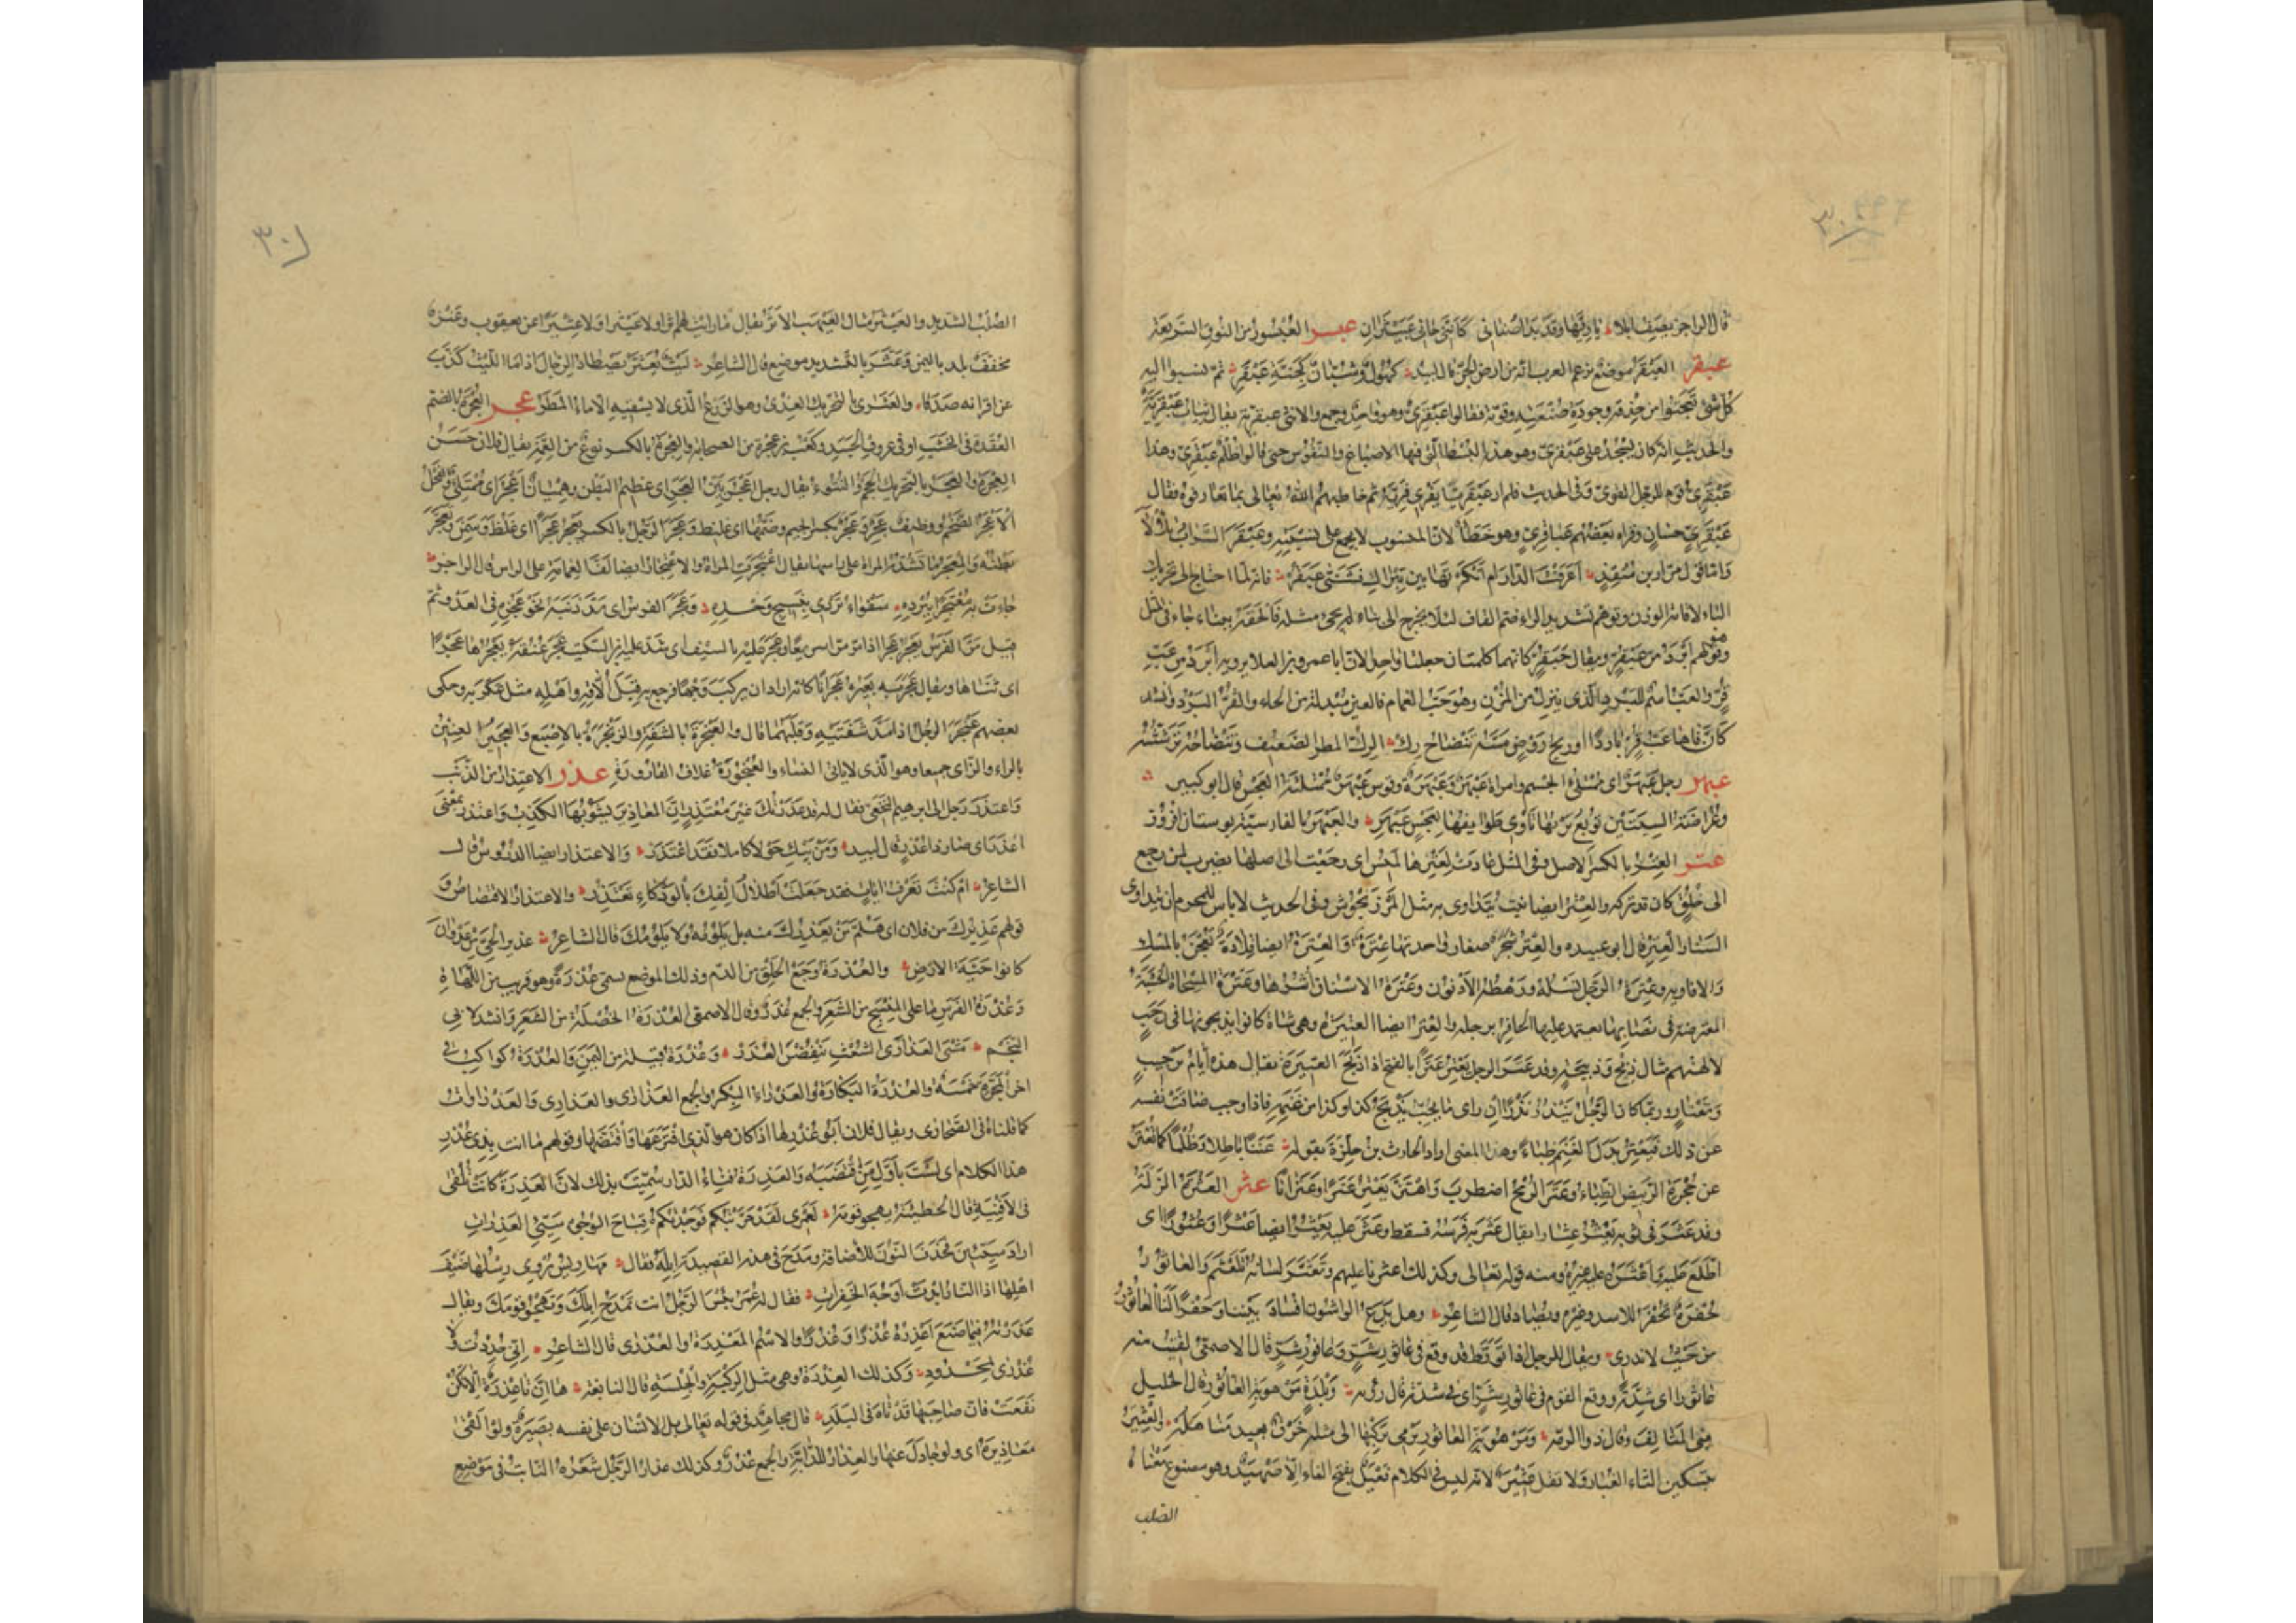 قال الراجز يصف ابلا يا ريها وقد بدا صناني كانني جاني عبيثران عبسر العبسور من النوق السريعة
عبقر العبقر موضع تزعم العرب انه من ارض الجن قال لبيد كهول وشبان كجنة عبقر ثم نسبوا اليه
كل شئ تعجبوا من حذقه وجودة صنعته وقوته فقالوا عبقري وهو واحد وجمع والانثى عبقرية يقال ثياب عبقرية
والحديث انه كان يسجد على عبقري وهو هذه البسط التي فيها الاصباغ والنقوش حتى قالوا ظلم عبقري وهذا
عبقري قوم للرجل القوي وفي الحديث فلم ار عبقريا يفري فريه ثم خاطبهم الله تعالى بما تعارفوه فقال
عبقري حسان وقراه بعضهم عباقري وهو خطأ لان المنسوب لا يجمع على نسبته وعبقر السراب تلألأ
واما قول مرار بن منقذ اعرفت الدار ام انكرتها بين تبراك فشسي عبقر فانه لما احتاج الى تحريك
الباء لاقامة الوزن وتوهم تشديد الراء ضم القاف لئلا يخرج الى بناء لم يجئ مثله فالحقه ببناء جاء في المثل
وقولهم ابرد من عبقر ويقال حبقر كانهما كلمتان جعلتا واحدة لان ابا عمرو بن العلا يرويه ابرد من عب
قر والعب اسم للبرد الذي ينزل من المزن وهو حب الغمام فالعين مبدلة من الحاء والقر البرد وانشد
كان فاها عب قر بارد او ريح روض مسه تنضاح رك الرك المطر الضعيف وتنضاحه ترششه
عبهر رجل عبهر اي ممتلئ الجسم وامراة عبهر وعبهرة وقوس عبهر ممتلئة العجس قال ابو كبير
وعراضة السيتين توبع بريها تاوي طوائفها لعجس عبهر والعبهر بالفارسية بوستان افروز
عتر العتر بالكسر الاصل وفي المثل عادت لعترها لميس اي رجعت الى اصلها يضرب لمن رجع
الى خلق كان قد تركه والعتر ايضا نبت يتداوى به مثل المرزنجوش وفي الحديث لا باس للمحرم ان يتداوى
السنا والعتر قال ابو عبيده والعتر شجر صغار واحدتها عترة والعترة ايضا قلادة تعجن بالمسك
والافاويه وعترة الرجل نسله ورهطه الادنون وعترة الاسنان اشرها وعترة المسحاة الخشبة
المعترضة في نصابها يعتمد عليها الحافر برجله والعتر ايضا العتيرة وهي شاة كانوا يذبحونها في رجب
لآلهتهم مثال ذبح وذبيحة وقد عتر الرجل يعتر عترا بالفتح اذا ذبح العتيرة يقال هذه ايام ترجيب
وتعتار وربما كان الرجل ينذر نذرا ان راى ما يحب يذبح كذا وكذا من غنمه فاذا وجب ضاقت نفسه
عن ذلك فيعتر بدل الغنم ظباء وهذا المعنى اراد الحارث بن حلزة بقوله عننا باطلا وظلما كما تعتر
عن حجرة الربيض الظباء وعتر الرمح اضطرب واهتز يعتر عترا وعترانا عثر العثرة الزلة
وقد عثر في ثوبه يعثر عثارا يقال عثر به فرسه فسقط وعثر عليه يعثر ايضا عثرا وعثورا اي
اطلع عليه واعثره عليه غيره ومنه قوله تعالى وكذلك اعثرنا عليهم وتعثر لسانه تلعثم والعاثور
حفرة تحفر للاسد وغيره وتصاد قال الشاعر وهل يدع الواشون افساد بيننا وحفرا لنا العاثور
من حيث لا ندري ويقال للرجل اذا تورط قد وقع في عاثور شر وعافور شر قال الاصمعي لقيت منه
عاثورا اي شدة ووقع القوم في عاثور شر اي في شدة قال رؤبة وبلدة مرهوبة العاثور قال الخليل
يعني المتالف وقال ذو الرمة ومرهوبة العاثور ترمي بركبها الى مثله حرف بعيد مناهله والعثير
بتسكين الثاء الغبار ولا تقل عثير لانه ليس في الكلام فعيل بفتح الفاء الا ضهيد وهو مصنوع معناه
الصلب
٣٠١
الصلب الشديد والعيثر مثال الغيهب الاثر يقال ما رايت لهم اثرا ولا عيثرا ولا عثيرا عن يعقوب وعثر
مخفف بلد باليمن وعثر بالتشديد موضع قال الشاعر ليث بعثر يصطاد الرجال اذا ما الليث كذب
عن اقرانه صدقا والعثري بالتحريك العذي وهو الزرع الذي لا يسقيه الا ماء المطر عجر العجرة بالضم
العقدة في الخشب او في عروق الجسد وكعب بن عجرة من الصحابة والعجرة بالكسر نوع من العمة يقال فلان حسن
العجرة والعجر بالتحريك الحجم والنتوء يقال رجل اعجر بين العجر اي عظيم البطن وهميان اعجر اي ممتلئ والفحل
الاعجر الضخم ووظيف عجر وعجر بكسر الجيم وضمها اي غليظ وعجر الرجل بالكسر يعجر عجرا اي غلظ وسمن وتعجر
بطنه والمعجر ما تشده المراة على راسها يقال اعتجرت المراة والاعتجار ايضا لف العمامة على الراس قال الراجز
جاءت به معتجرا ببرده سفواء تردي بنسيج وحده وعجر الفرس اي مد ذنبه نحو عجزه في العدو ثم
قيل مر الفرس يعجر عجرا اذا مر مرا سريعا وعجر عليه بالسيف اي شد عليه ابن السكيت عجر عنقه يعجرها عجرا
اي ثناها ويقال عجر به بعيره عجرانا كانه اراد ان يركب وجها فرجع به قبل الافه واهله مثل عكر به وحكى
بعضهم عنجر الرجل اذا مد شفتيه وقلبهما قال والعنجرة بالشفة والزنجرة بالاصبع والعجير العنين
بالراء والزاى جميعا وهو الذي لا ياتي النساء والعنجورة غلاف القارورة عذر الاعتذار من الذنب
واعتذر رجل الى ابرهيم النخعي فقال له قد عذرتك غير معتذر ان المعاذير يشوبها الكذب واعتذر بمعنى
اعذر اي صار ذا عذر قال لبيد ومن يبك حولا كاملا فقد اعتذر والاعتذار ايضا الدروس قال
الشاعر ام كنت تعرف ايات فقد جعلت اطلال الفك بالودكاء تعتذر والاعتذار الاقتضاض و
قولهم عذيرك من فلان اي هلم من يعذرك منه بل يلومه ولا يلومك قال الشاعر عذير الحي من عدوان
كانوا حية الارض والعذرة وجع الحلق من الدم وذلك الموضع يسمى عذرة وهو قريب من اللهاة
وعذرة الفرس ما على المنسج من الشعر والجمع عذر وقال الاصمعي العذرة الخصلة من الشعر وانشد لابي
النجم مشي العذارى الشعث ينفضن العذر وعذرة قبيلة من اليمن والعذرة كواكب في
اخر المجرة خمسة والعذرة البكارة والعذراء البكر والجمع العذارى والعذاري والعذراوات
كما قلناه في الصحارى ويقال فلان ابو عذرها اذا كان هو الذي افترعها وافتضها وقولهم ما انت بذي عذر
هذا الكلام اي لست باول من اقتضبه والعذرة فناء الدار سميت بذلك لان العذرة كانت تلقى
في الافنية قال الحطيئة يهجو قومه لعمري لقد جربتكم فوجدتكم قباح الوجوه سيئي العذرات
اراد سيئين فحذف النون للاضافة ومدح في هذه القصيدة ابله فقال مهاريس يروي رسلها ضيف
اهلها اذا النار ابدت اوجه الخفرات فقال له عمر بئس الرجل انت تمدح ابلك وتهجو قومك ويقال
عذرته فيما صنع اعذره عذرا وعذرا والاسم المعذرة والعذرى قال الشاعر اني حددت ولا
عذرى لمحدود وكذلك العذرة وهي مثل الركبة والجلسة قال النابغة ها ان تا عذرة الا تكن
نفعت فان صاحبها قد تاه في البلد قال مجاهد في قوله تعالى بل الانسان على نفسه بصيرة ولو القى
معاذيره اي ولو جادل عنها والعذار للدابة والجمع عذر وكذلك عذار الرجل شعره النابت في موضع